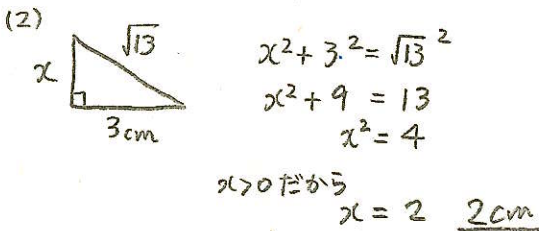 (2)
√13
x
3cm
x² + 3.² = √13 ²
x² + 9 = 13
x² = 4
x>0だから
x = 2 2cm